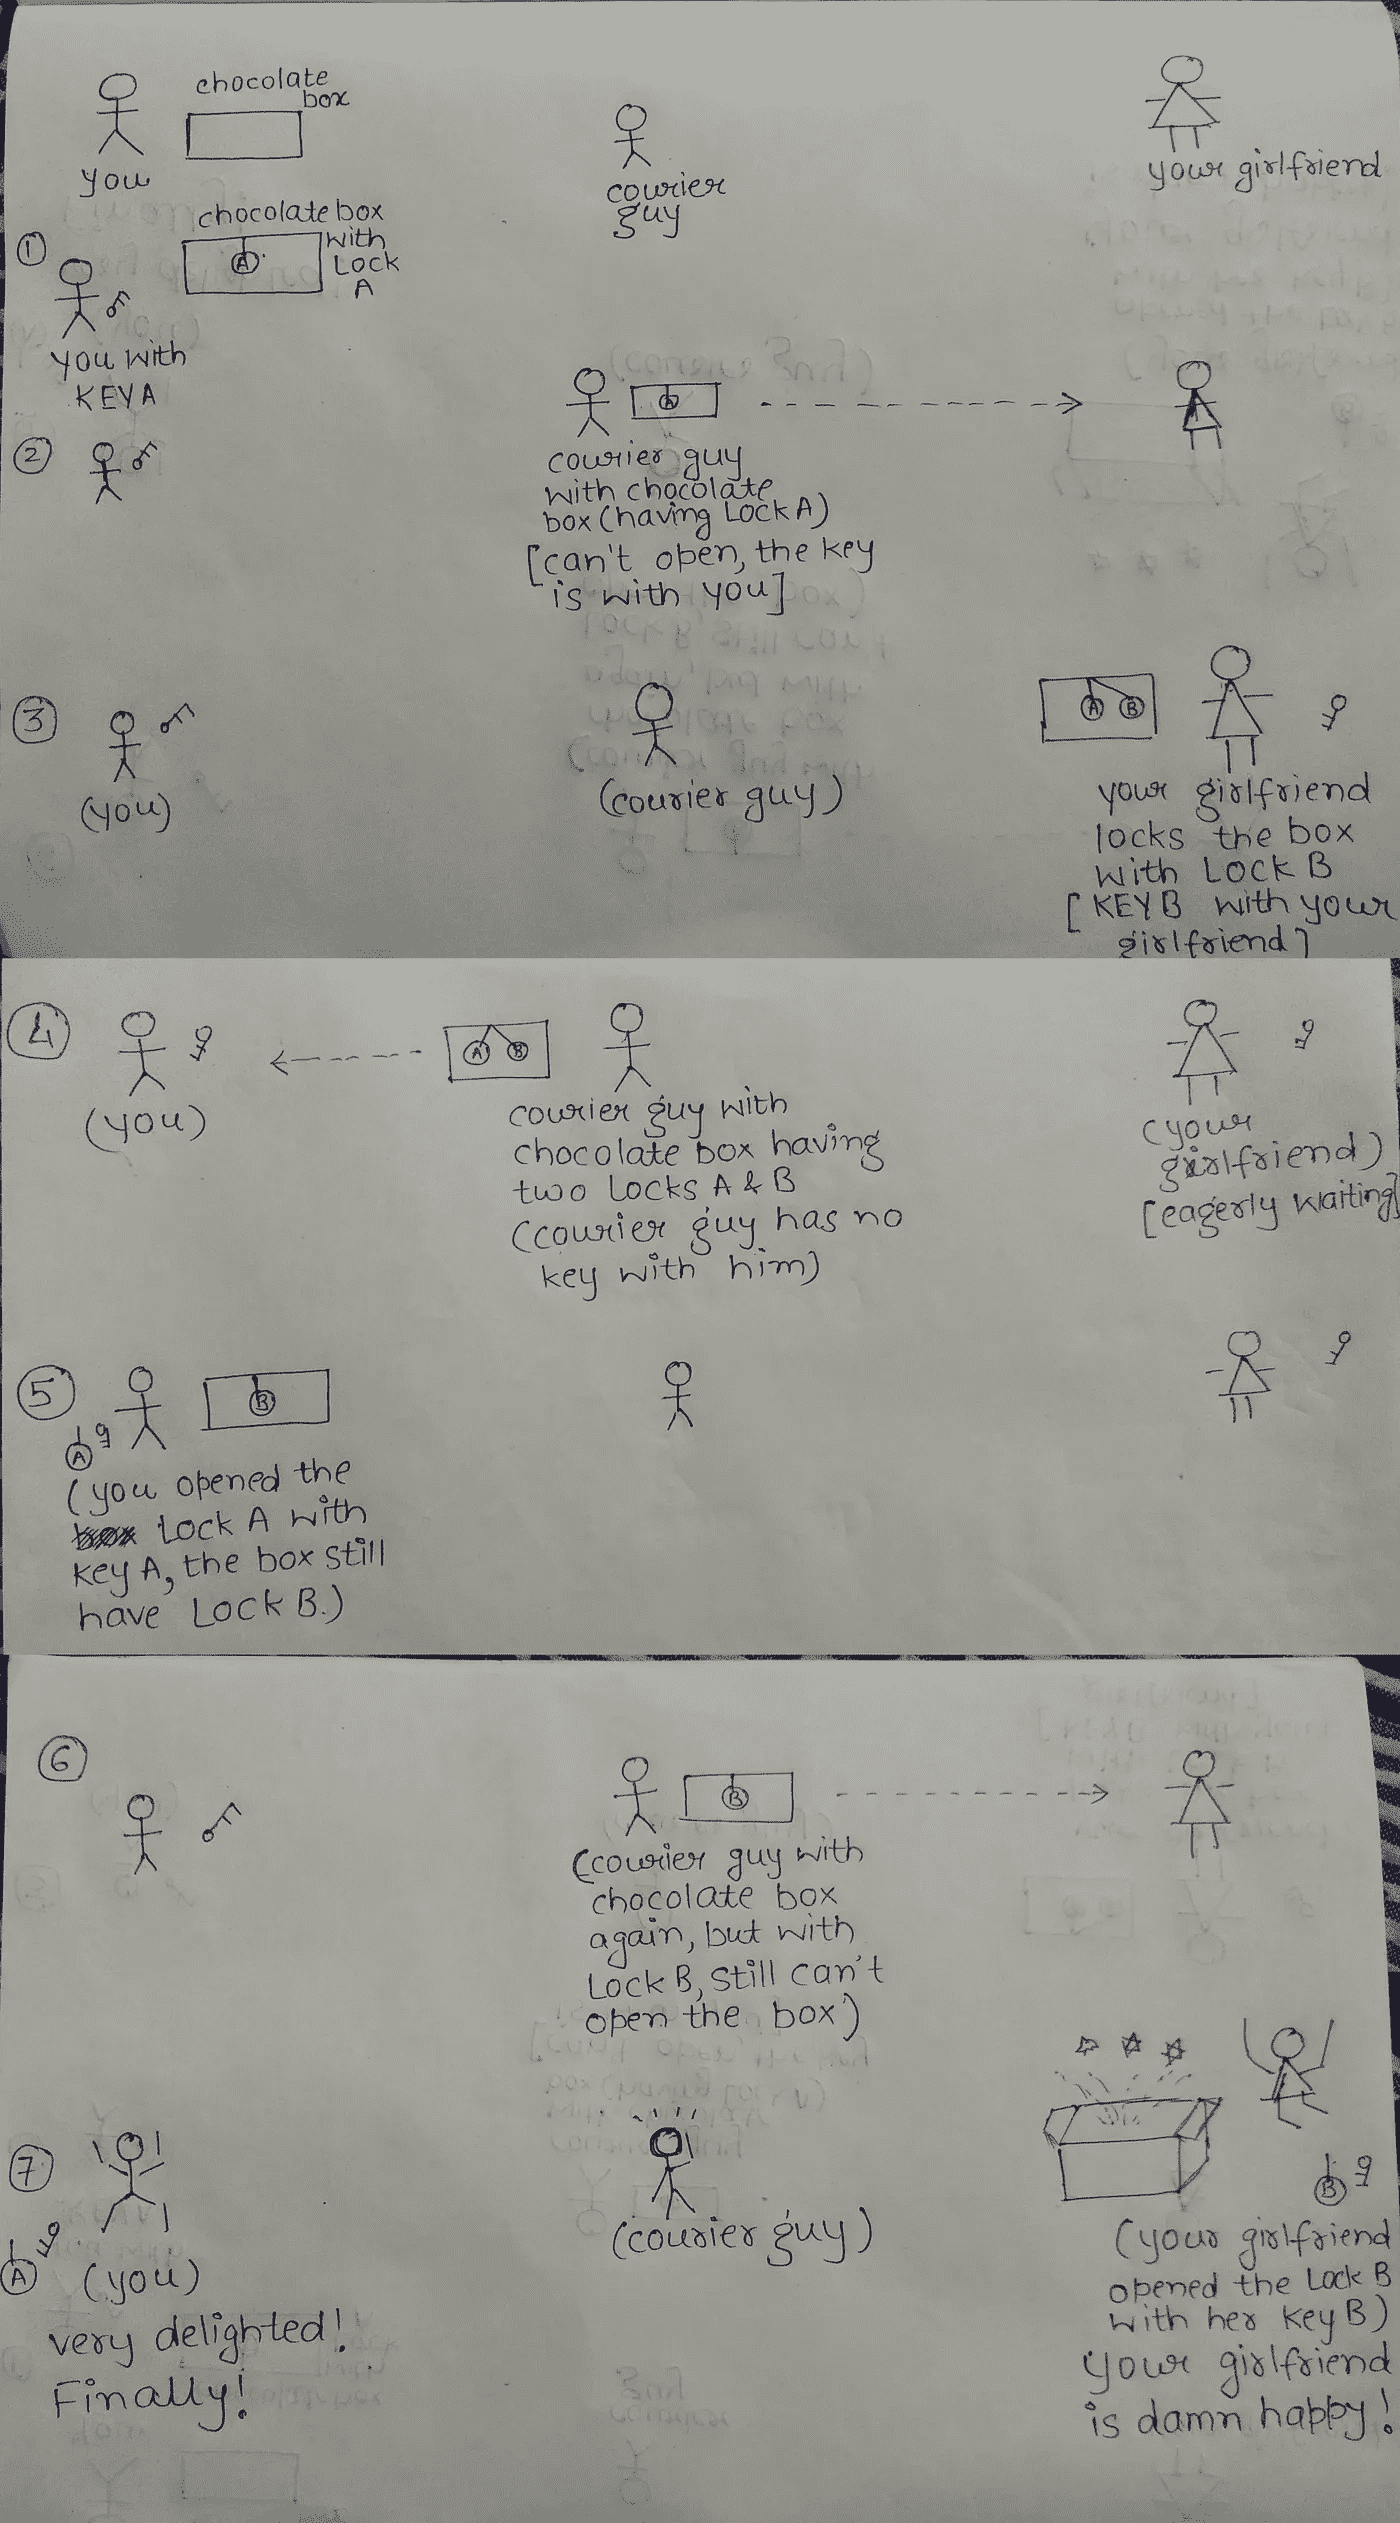 chocolate
box
you
courier
guy
your girlfriend
1
chocolate box
with
Lock
A
A
you with
KEY A
A
courier guy
with chocolate
box (having Lock A)
[can't open, the key
is with you]
2
3
(you)
(courier guy)
A B
your girlfriend
locks the box
with Lock B
[KEY B with your
girlfriend]
4
(you)
A B
courier guy with
chocolate box having
two Locks A & B
(courier guy has no
key with him)
(your
girlfriend)
[eagerly waiting]
5
B
A
(you opened the
box Lock A with
key A, the box still
have Lock B.)
6
B
(courier guy with
chocolate box
again, but with
Lock B, still can't
open the box)
7
A
(you)
very delighted!
Finally!
(courier guy)
B
(your girlfriend
opened the Lock B
with her key B)
your girlfriend
is damn happy!